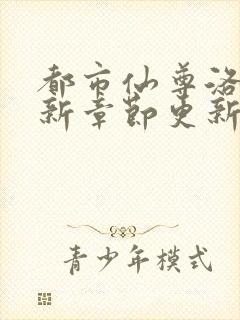 都市仙尊洛
新章節更新
青少年模式